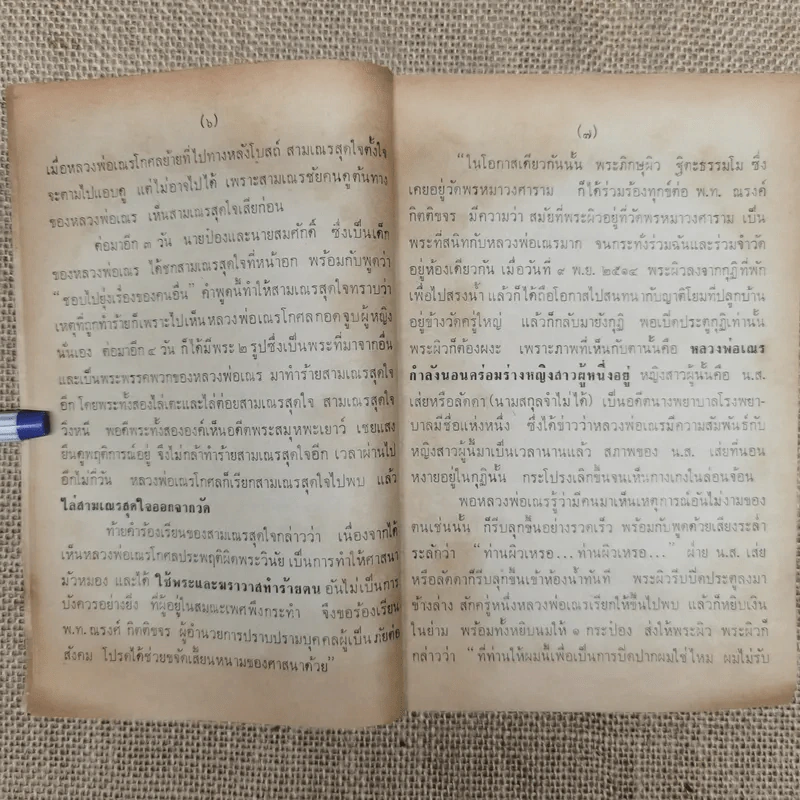 (๖)
เมื่อหลวงพ่อเณรโกศลย้ายที่ไปทางหลังโบสถ์ สามเณรสุดใจตั้งใจ
จะตามไปแอบดู แต่ไม่อาจไปได้ เพราะสามเณรชัยคนดูต้นทาง
ของหลวงพ่อเณร เห็นสามเณรสุดใจเสียก่อน
ต่อมาอีก ๓ วัน นายป๋องและนายสมศักดิ์ ซึ่งเป็นเด็ก
ของหลวงพ่อเณร ได้ชกสามเณรสุดใจที่หน้าอก พร้อมกับพูดว่า
“ชอบไปยุ่งเรื่องของคนอื่น” คำพูดนี้ทำให้สามเณรสุดใจทราบว่า
เหตุที่ถูกทำร้ายก็เพราะไปเห็นหลวงพ่อเณรโกศลกอดจูบผู้หญิง
นั่นเอง ต่อมาอีก ๔ วัน ก็ได้มีพระ ๒ รูปซึ่งเป็นพระที่มาจากอื่น
และเป็นพระพรรคพวกของหลวงพ่อเณร มาทำร้ายสามเณรสุดใจ
อีก โดยพระทั้งสองไล่เตะและไล่ต่อยสามเณรสุดใจ สามเณรสุดใจ
วิ่งหนี พอดีพระทั้งสององค์เห็นอดีตพระสมุหพะเยาว์ เชยแสง
ยืนดูพฤติการณ์อยู่ จึงไม่กล้าทำร้ายสามเณรสุดใจอีก เวลาผ่านไป
อีกไม่กี่วัน หลวงพ่อเณรโกศลก็เรียกสามเณรสุดใจไปพบ แล้ว
ไล่สามเณรสุดใจออกจากวัด
ท้ายคำร้องเรียนของสามเณรสุดใจกล่าวว่า เนื่องจากได้
เห็นหลวงพ่อเณรโกศลประพฤติผิดพระวินัย เป็นการทำให้ศาสนา
มัวหมอง และได้ ใช้พระและฆราวาสทำร้ายตน อันไม่เป็นการ
บังควรอย่างยิ่ง ที่ผู้อยู่ในสมณะเพศพึงกระทำ จึงขอร้องเรียน
พ.ท. ณรงค์ กิตติขจร ผู้อำนวยการปราบปรามบุคคลผู้เป็นภัยต่อ
สังคม โปรดได้ช่วยขจัดเสี้ยนหนามของศาสนาด้วย”
(๗)
“ในโอกาสเดียวกันนั้น พระภิกษุผิว ฐิตะธรรมโม ซึ่ง
เคยอยู่วัดพรหมาวงศาราม ก็ได้ร่วมร้องทุกข์ต่อ พ.ท. ณรงค์
กิตติขจร มีความว่า สมัยที่พระผิวอยู่ที่วัดพรหมาวงศาราม เป็น
พระที่สนิทกับหลวงพ่อเณรมาก จนกระทั่งร่วมฉันและร่วมจำวัด
อยู่ห้องเดียวกัน เมื่อวันที่ ๙ พ.ย. ๒๕๑๔ พระผิวลงจากกุฏิที่พัก
เพื่อไปสรงน้ำ แล้วก็ได้ถือโอกาสไปสนทนากับญาติโยมที่ปลูกบ้าน
อยู่ข้างวัดครู่ใหญ่ แล้วก็กลับมายังกุฏิ พอเปิดประตูกุฏิเท่านั้น
พระผิวก็ต้องผงะ เพราะภาพที่เห็นกับตานั้นคือ หลวงพ่อเณร
กำลังนอนคร่อมร่างหญิงสาวผู้หนึ่งอยู่ หญิงสาวผู้นั้นคือ น.ส.
เส่ยหรือลัดดา (นามสกุลจำไม่ได้) เป็นอดีตนางพยาบาลโรงพยา-
บาลมีชื่อแห่งหนึ่ง ซึ่งได้ข่าวว่าหลวงพ่อเณรมีความสัมพันธ์กับ
หญิงสาวผู้นี้มาเป็นเวลานานแล้ว สภาพของ น.ส. เส่ยที่นอน
หงายอยู่ในกุฏินั้น กระโปรงเลิกขึ้นจนเห็นกางเกงในล่อนจ้อน
พอหลวงพ่อเณรรู้ว่ามีคนมาเห็นเหตุการณ์อันไม่งามของ
ตนเช่นนั้น ก็รีบลุกขึ้นอย่างรวดเร็ว พร้อมกับพูดด้วยเสียงระล่ำ
ระลักว่า “ท่านผิวเหรอ...ท่านผิวเหรอ...” ฝ่าย น.ส. เส่ย
หรือลัดดาก็รีบลุกขึ้นเข้าห้องน้ำทันที พระผิวรีบปิดประตูลงมา
ข้างล่าง สักครู่หนึ่งหลวงพ่อเณรเรียกให้ขึ้นไปพบ แล้วก็หยิบเงิน
ในย่าม พร้อมทั้งหยิบนมให้ ๑ กระป๋อง ส่งให้พระผิว พระผิวก็
กล่าวว่า “ที่ท่านให้ผมนี้เพื่อเป็นการปิดปากผมใช่ไหม ผมไม่รับ